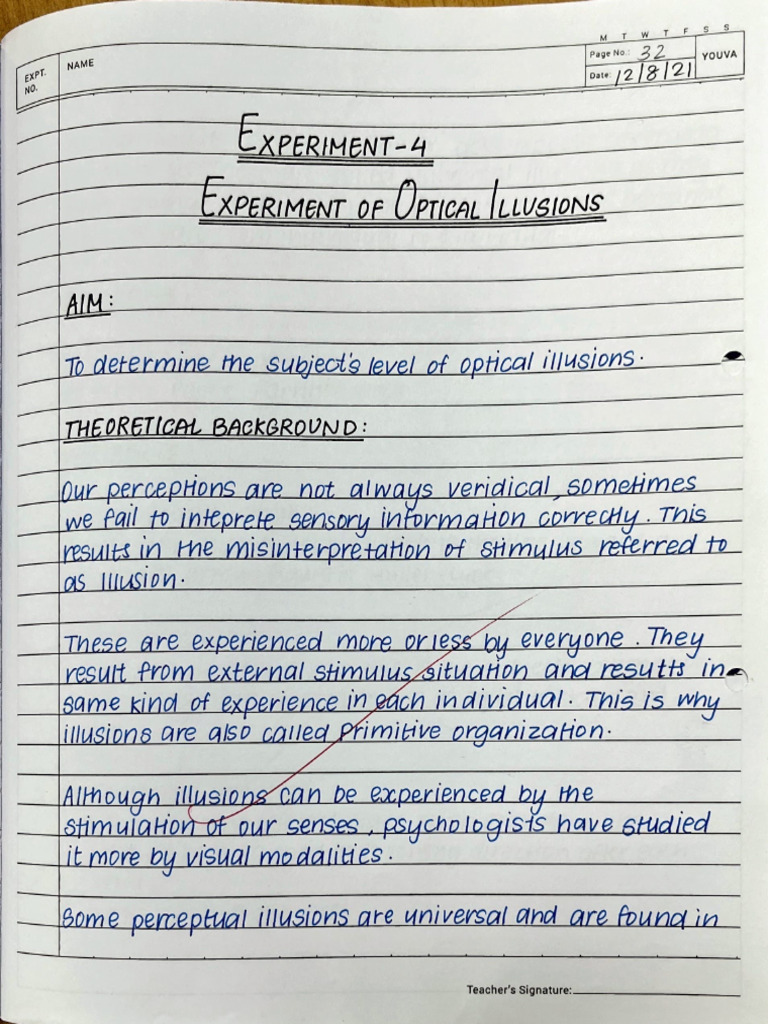 M T W T F S S
EXPT. NO.
NAME
Page No.: 32
Date: 12/8/21
YOUVA
EXPERIMENT-4
EXPERIMENT OF OPTICAL ILLUSIONS
AIM:
To determine the subject's level of optical illusions.
THEORETICAL BACKGROUND:
Our perceptions are not always veridical, sometimes
we fail to inteprete sensory information correctly. This
results in the misinterpretation of stimulus referred to
as Illusion.
These are experienced more or less by everyone. They
result from external stimulus situation and results in
same kind of experience in each individual. This is why
illusions are also called Primitive organization.
Although illusions can be experienced by the
stimulation of our senses, psychologists have studied
it more by visual modalities.
Some perceptual illusions are universal and are found in
Teacher's Signature: